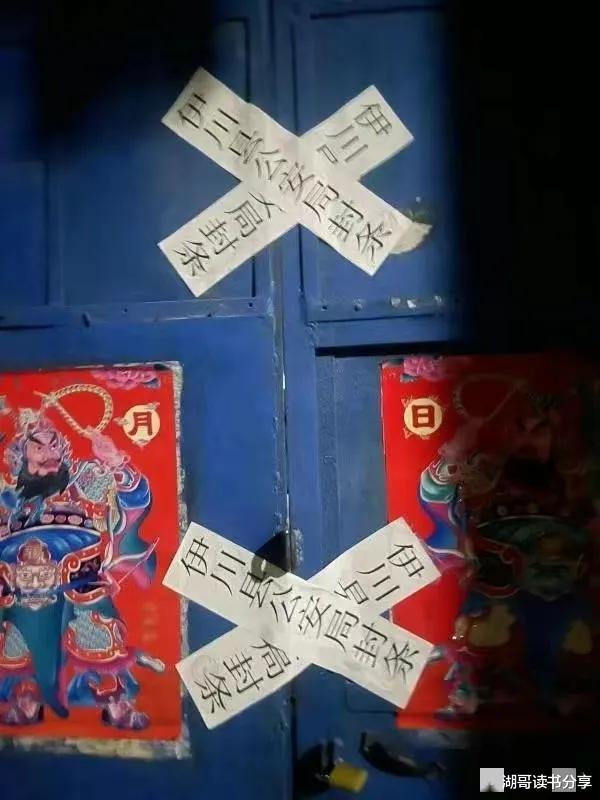 伊川县公安局封条
伊川
局封条
月
日
伊川县公安局封条
伊川
局封条
湖哥读书分享